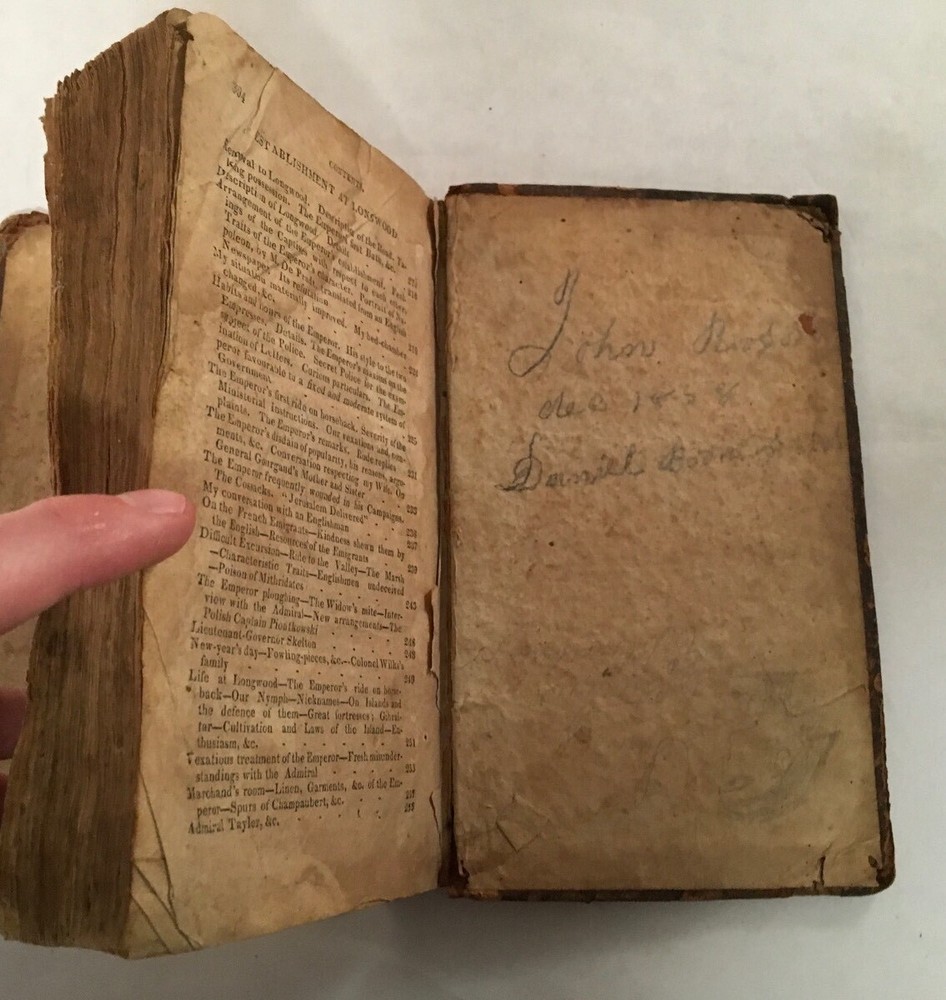 304
CONTENTS.
ESTABLISHMENT AT LONGWOOD
to Longwood. Description of the Road.
possession. The Emperor's first Bath, &c.
Description of Longwood. Details
Arrangement of the Emperor's establishment. Feel-
ings of the Captives with respect to each other.
Traits of the Emperor's character. Portrait of Na-
poleon, by M. De Pradt, translated from an English
Newspaper. Its refutation
My situation materially improved. My bed-chamber
changed, &c.
Habits and hours of the Emperor. His style to the two
Empresses. Details. The Emperor's
subject of the Police. Secret Police for the exam-
ination of Letters. Curious particulars. The Em-
peror favourable to a fixed and moderate system of
Government.
The Emperor's first ride on horseback. Severity of the
Ministerial instructions. Our vexations and com-
plaints. The Emperor's remarks. Rude replies
The Emperor's disdain of popularity, his reasons, argu-
ments, &c. Conversation respecting my Wife. On
General Gourgaud's Mother and Sister
The Emperor frequently wounded in his Campaigns.
The Cossacks. "Jerusalem Delivered"
My conversation with an Englishman
On the French Emigrants—Kindness shewn them by
the English—Resources of the Emigrants
Difficult Excursion—Ride to the Valley—The Marsh
—Characteristic Traits—Englishmen undeceived
—Poison of Mithridates 245
The Emperor ploughing—The Widow's mite—Inter-
view with the Admiral—New arrangements—The
Polish Captain Piontkowski 248
Lieutenant-Governor Skelton 248
New-year's day—Fowling-pieces, &c.—Colonel Wilks's
family 249
Life at Longwood—The Emperor's ride on horse-
back—Our Nymph—Nicknames—On Islands and
the defence of them—Great fortresses; Gibral-
tar—Cultivation and Laws of the Island—En-
thusiasm, &c. 251
Vexatious treatment of the Emperor—Fresh misunder-
standings with the Admiral
Marchand's room—Linen, Garments, &c. of the Em-
peror—Spurs of Champaubert, &c.
Admiral Taylor, &c.
John
Daniel